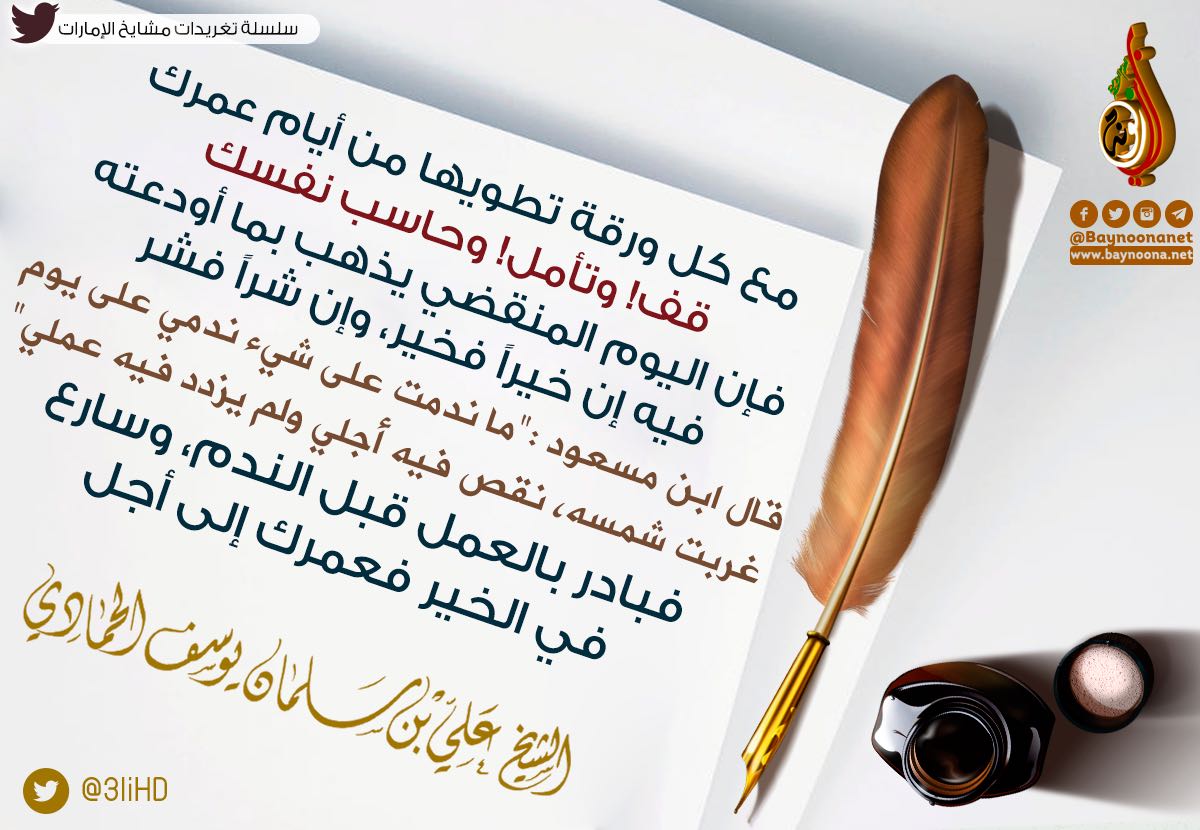 سلسلة تغريدات مشايخ الإمارات
مع كل ورقة تطويها من أيام عمرك
قف! وتأمل! وحاسب نفسك
فإن اليوم المنقضي يذهب بما أودعته
فيه إن خيراً فخير، وإن شراً فشر
قال ابن مسعود :"ما ندمت على شيء ندمي على يوم
غربت شمسه، نقص فيه أجلي ولم يزدد فيه عملي"
فبادر بالعمل قبل الندم، وسارع
في الخير فعمرك إلى أجل
الشيخ علي بن سلمان يوسف الحمادي
@3liHD
@Baynoonanet
www.baynoona.net